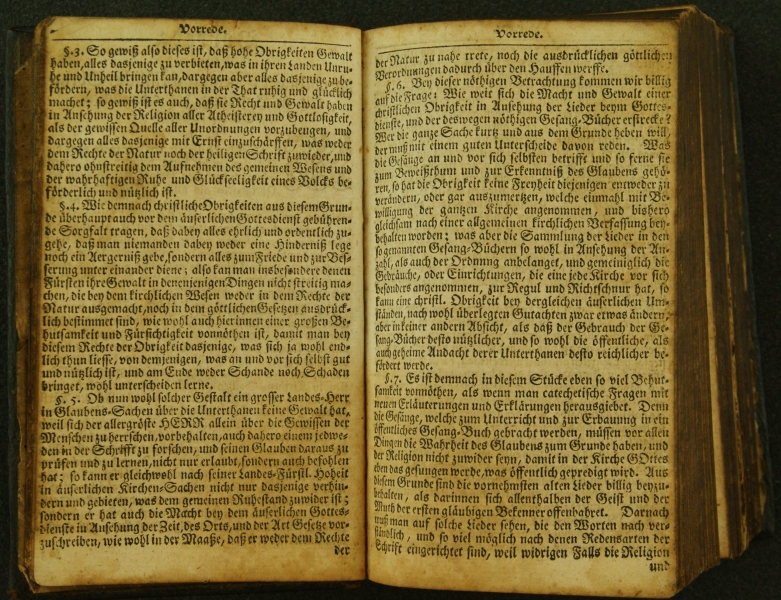 Vorrede.
§. 3. So gewiß also dieses ist, daß hohe Obrigkeiten Gewalt
haben, alles dasjenige zu verbieten, was in ihren Landen Unru-
he und Unheil bringen kan, dargegen aber alles dasjenige zu be-
fördern, was die Unterthanen in der That ruhig und glücklich
machet; so gewiß ist es auch, daß sie Recht und Gewalt haben
in Ansehung der Religion aller Atheisterey und Gottlosigkeit,
als der gewissen Quelle aller Unordnungen vorzubeugen, und
dargegen alles dasjenige mit Ernst einzuschärffen, was weder
dem Rechte der Natur noch der heiligen Schrift zuwieder, und
dahero ohnstreitig dem Aufnehmen des gemeinen Wesens und
der wahrhaftigen Ruhe und Glückseeligkeit eines Volcks be-
förderlich und nützlich ist.
§. 4. Wie demnach christliche Obrigkeiten aus diesem Grun-
de überhaupt auch vor dem äuserlichen Gottesdienst gebühren-
de Sorgfalt tragen, daß dabey alles ehrlich und ordentlich zu-
gehe, daß man niemanden dabey weder eine Hinderniß lege
noch ein Aergerniß gebe, sondern alles zum Friede und zur Bes-
serung unter einander diene; also kan man insbesondere denen
Fürsten ihre Gewalt in denenjenigen Dingen nicht streitig ma-
chen, die bey dem kirchlichen Wesen weder in dem Rechte der
Natur ausgemacht, noch in dem göttlichen Gesetzen ausdrück-
lich bestimmet sind, wie wohl auch hierinnen einer großen Be-
hutsamkeit und Fürsichtigkeit vonnöthen ist, damit man bey
diesem Rechte der Obrigkeit dasjenige, was sich ja wohl end-
lich thun liesse, von demjenigen, was an und vor sich selbst gut
und nützlich ist, und am Ende weder Schande noch Schaden
bringet, wohl unterscheiden lerne.
§. 5. Ob nun wohl solcher Gestalt ein grosser Landes-Herr
in Glaubens-Sachen über die Unterthanen keine Gewalt hat,
weil sich der allergröste HERR allein über die Gewissen der
Menschen zu herrschen, vorbehalten, auch dahero einem jedwe-
den in der Schrifft zu forschen, und seinen Glauben daraus zu
prüfen und zu lernen, nicht nur erlaubt, sondern auch befohlen
hat; so kan er gleichwohl nach seiner Landes-Fürstl. Hoheit
in äuserlichen Kirchen-Sachen nicht nur dasjenige verhin-
dern und gebieten, was dem gemeinen Ruhestand zuwider ist;
sondern er hat auch die Macht bey dem äuserlichen Gottes-
dienste in Ansehung der Zeit, des Orts, und der Art Gesetze vor-
zuschreiben, wie wohl in der Maaße, daß er weder dem Rechte
der
Vorrede.
der Natur zu nahe trete, noch die ausdrücklichen göttlichen
Verordnungen dadurch über den Hauffen werffe.
§. 6. Bey dieser nöthigen Betrachtung kommen wir billig
auf die Frage: Wie weit sich die Macht und Gewalt einer
christlichen Obrigkeit in Ansehung der Lieder beym Gottes-
dienste, und der deswegen nöthigen Gesang-Bücher erstrecke?
Wer die ganze Sache kurtz und aus dem Grunde heben will,
der muß mit einem guten Unterscheide davon reden. Was
die Gesänge an und vor sich selbsten betrifft und so ferne sie
zum Beweißthum und zur Erkenntniß des Glaubens gehö-
ren, so hat die Obrigkeit keine Freyheit diejenigen entweder zu
verändern, oder gar auszumertzen, welche einmahl mit Be-
willigung der gantzen Kirche angenommen, und bishero
gleichsam nach einer allgemeinen kirchlichen Verfassung bey-
behalten worden; was aber die Sammlung der Lieder in den
so genannten Gesang-Büchern so wohl in Ansehung der An-
zahl, als auch der Ordnung anbelanget, und gemeiniglich die
Gebräuche, oder Einrichtungen, die eine jede Kirche vor sich
besonders angenommen, zur Regul und Richtschnur hat, so
kann eine christl. Obrigkeit bey dergleichen äuserlichen Um-
ständen, nach wohl überlegten Gutachten zwar etwas ändern,
aber in keiner andern Absicht, als daß der Gebrauch der Ge-
sang-Bücher desto nützlicher, und so wohl die öffentliche, als
auch geheime Andacht derer Unterthanen desto reichlicher be-
fördert werde.
§. 7. Es ist demnach in diesem Stücke eben so viel Behut-
samkeit vonnöthen, als wenn man catechetische Fragen mit
neuen Erläuterungen und Erklärungen herausgiebet. Denn
die Gesänge, welche zum Unterricht und zur Erbauung in ein
öffentliches Gesang-Buch gebracht werden, müssen vor allen
Dingen die Wahrheit des Glaubens zum Grunde haben, und
der Religion nicht zuwider seyn, damit in der Kirche GOttes
eben das gesungen werde, was öffentlich geprediget wird. Aus
diesem Grunde sind die vornehmsten alten Lieder billig beyzu-
behalten, als darinnen sich allenthalben der Geist und der
Muth der ersten gläubigen Bekenner offenbahret. Darnach
muß man auf solche Lieder sehen, die den Worten nach ver-
ständlich, und so viel möglich nach denen Redensarten der
Schrift eingerichtet sind, weil widrigen Falls die Religion
und